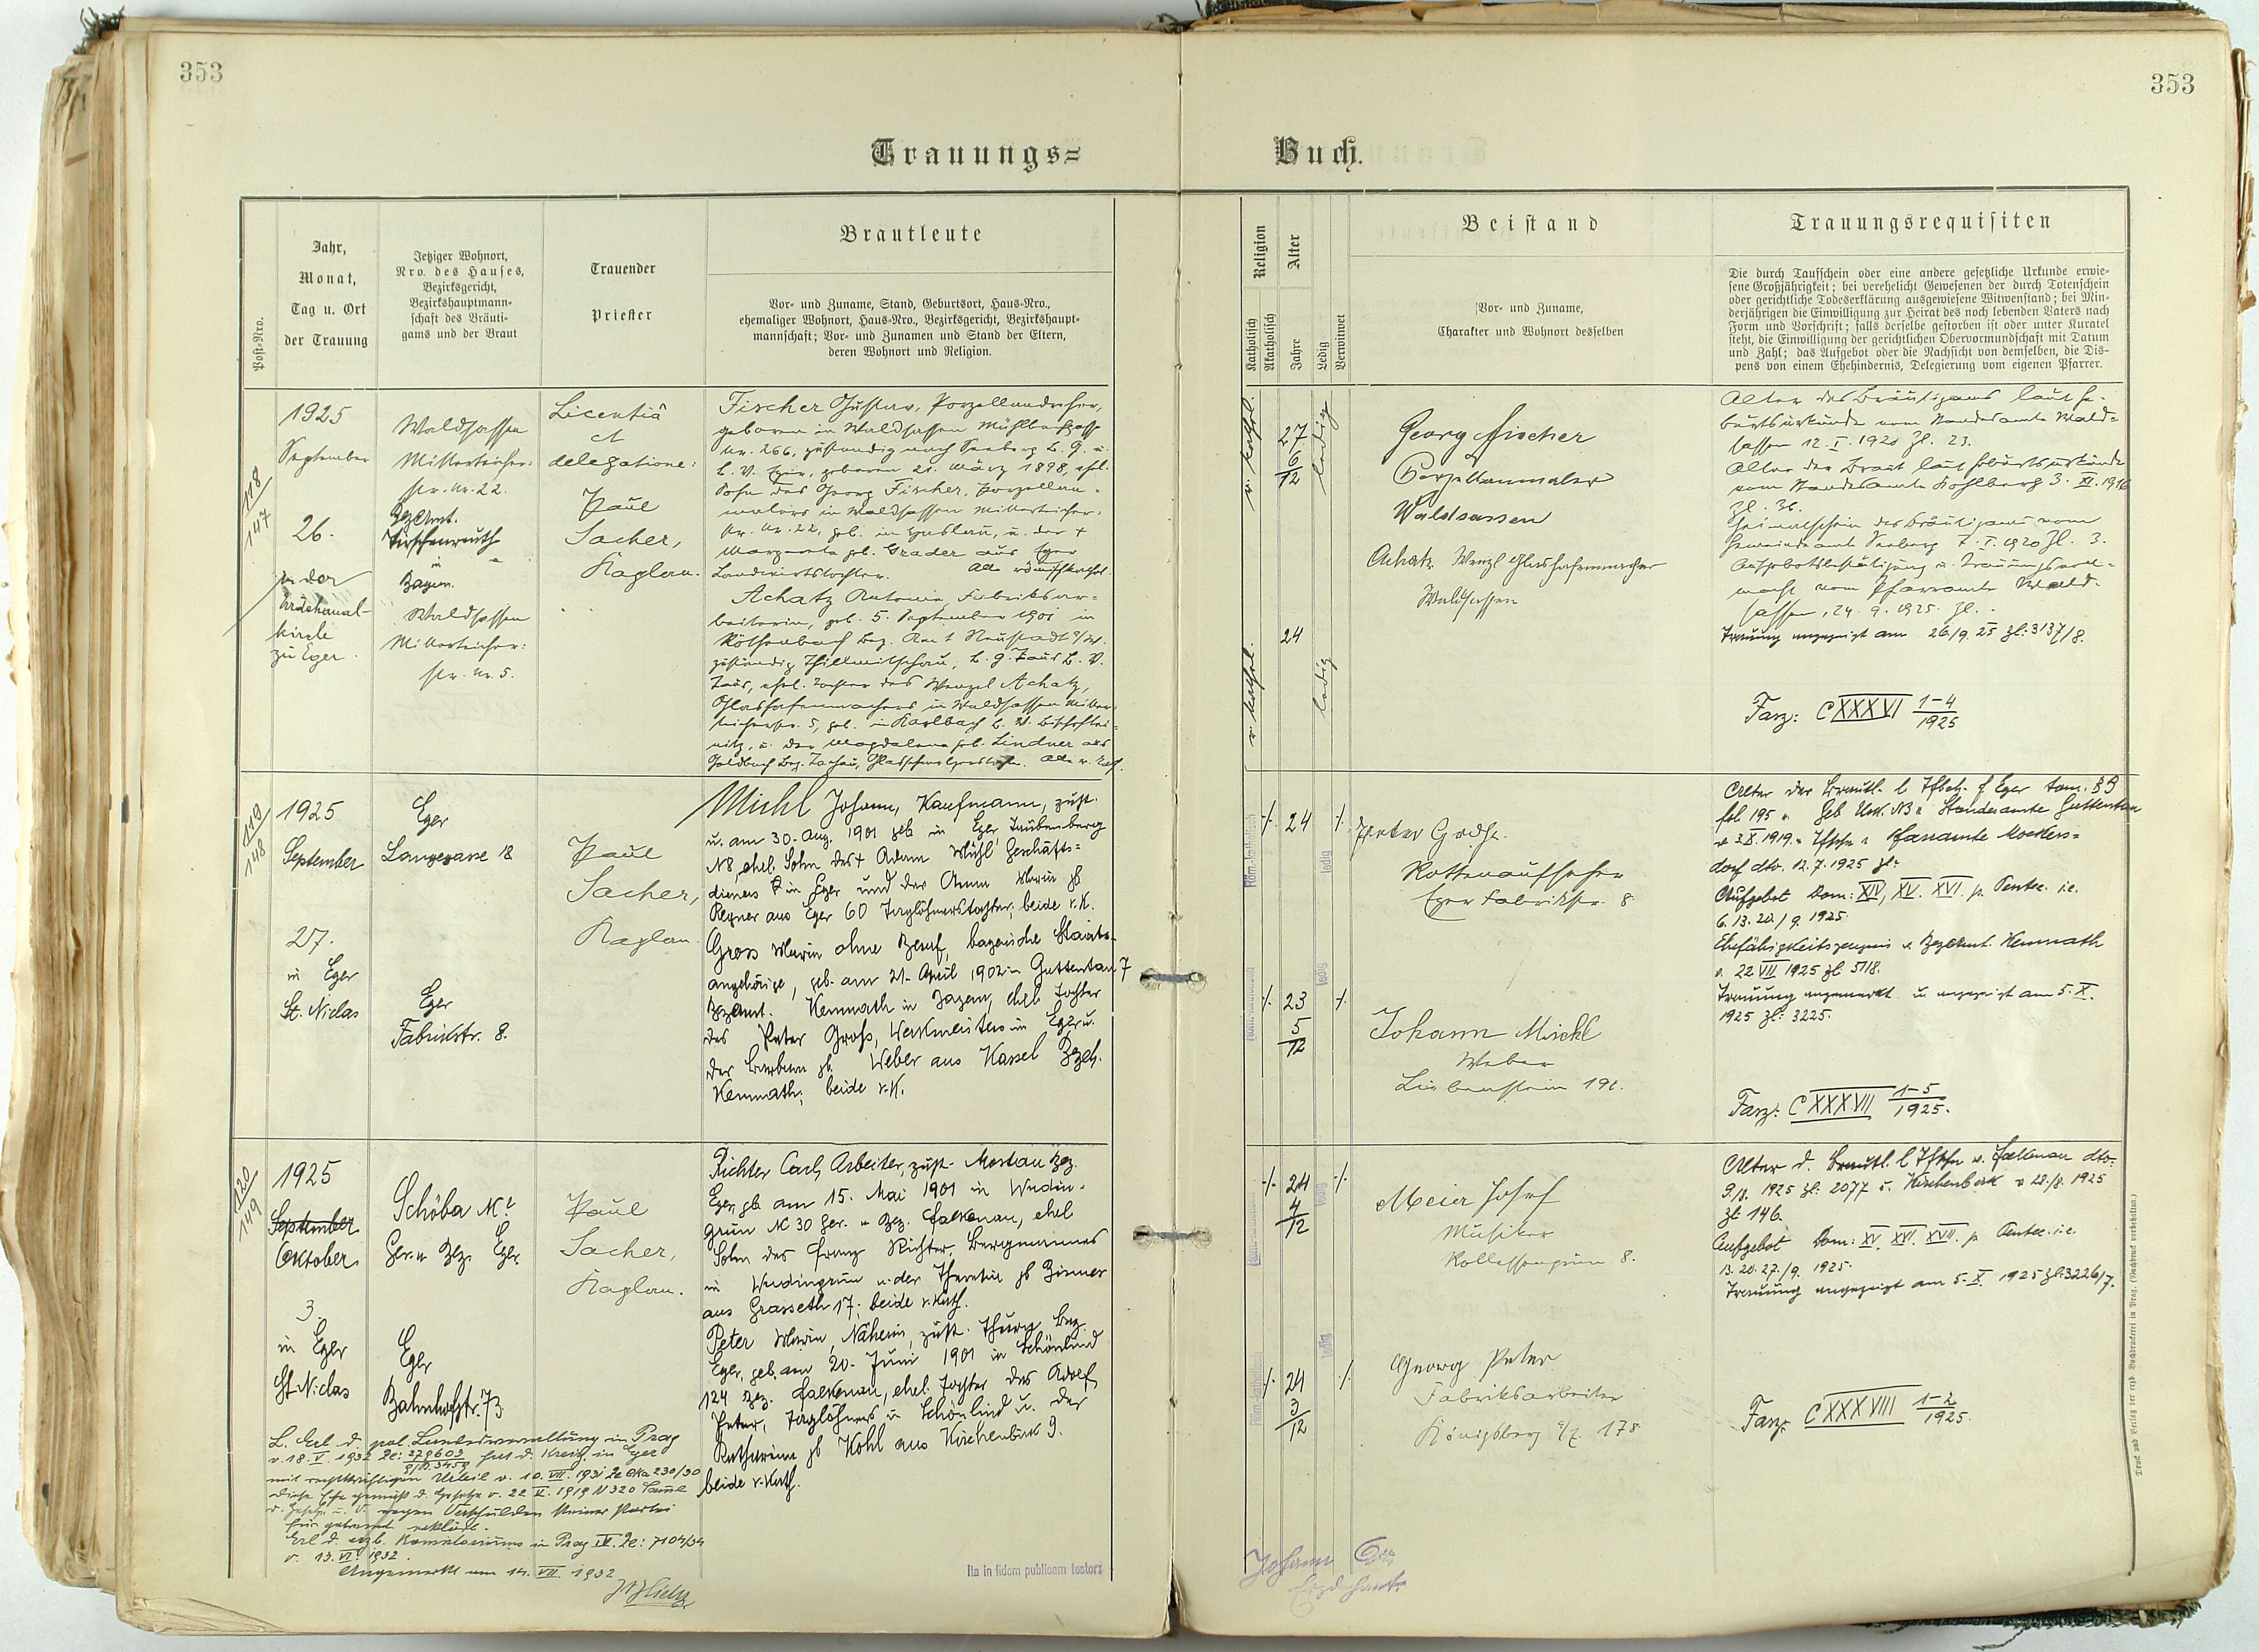 353
353
Trauungs=
Buch.
Post=Nro.
Jahr,
Monat,
Tag u. Ort
der Trauung
Jetziger Wohnort,
Nro. des Hauses,
Bezirksgericht,
Bezirkshauptmann-
schaft des Bräuti-
gams und der Braut
Trauender
Priester
Brautleute
Vor- und Zuname, Stand, Geburtsort, Haus-Nro.,
ehemaliger Wohnort, Haus-Nro., Bezirksgericht, Bezirkshaupt-
mannschaft; Vor- und Zunamen und Stand der Eltern,
deren Wohnort und Religion.
Religion
Katholisch
Akatholisch
Alter
Jahre
Ledig
Verwitwet
Beistand
Vor- und Zuname,
Charakter und Wohnort desselben
Trauungsrequisiten
Die durch Taufschein oder eine andere gesetzliche Urkunde erwie-
sene Großjährigkeit; bei verehelicht Gewesenen der durch Totenschein
oder gerichtliche Todeserklärung ausgewiesene Witwenstand; bei Min-
derjährigen die Einwilligung zur Heirat des noch lebenden Vaters nach
Form und Vorschrift; falls derselbe gestorben ist oder unter Kuratel
steht, die Einwilligung der gerichtlichen Obervormundschaft mit Datum
und Zahl; das Aufgebot oder die Nachsicht von demselben, die Dis-
pens von einem Ehehindernis, Delegierung vom eigenen Pfarrer.
118
147
1925
September
26.
in der
kirche
zu Eger.
Waldsassen
Mitterteicher:
str. nr. 22.
BezAmt.
Tirschenreuth
in
Bayern.
Waldsassen
Mitterteicher:
str. nr. 5.
Licentiâ
et
delegatione:
Paul
Sacher,
Kaplan.
Fischer Gustav, Porzellandreher,
geboren in Waldsassen
nr. 266, zuständig nach Seeberg B. G. u.
B. V. Eger, geboren 21. März 1898, ehel.
Sohn des Georg Fischer, Porzellan-
malers in Waldsassen Mitterteicher-
str. nr. 22, geb. in u. der †
Margareta geb. Grader aus Eger
Landwirtstochter. Alle römischkathol.
Achatz Antonia, Fabriksar=
beiterin, geb. 5. September 1901 in
Röthenbach Bez. Amt Neustadt
zuständig B. G. Taus B. V.
Taus, ehel. Tochter des Wenzel Achatz,
Glashafenmachers in Waldsassen Mitter-
teicherstr. 5, geb. in
nitz, u. der Magdalena geb. Lindner aus
Goldbach Bez. Tachau,
r. kathol.
27
6
12
ledig
r. kathol.
24
ledig
Georg Fischer
Porzellanmaler
Waldsassen
Achatz Wenzl Glashafenmacher
Waldsassen
Alter des Bräutigams laut Ge-
burtsurkunde vom Standesamte Wald=
sassen 12. I. 1920 Zl. 23.
Alter der Braut laut Geburtsurkunde
vom Standesamte Kohlberg 3. XI. 1916
Zl. 36.
Heimatschein des Bräutigams vom
Gemeindeamt Seeberg 7. I. 1920 Zl. 3.
Aufgebotsbestätigung u. Trauungsvoll=
macht vom Pfarramte Wald-
sassen, 24. 9. 1925. Zl. -
Trauung angezeigt am 26/9. 25 Zl: 3137/8.
Fasz: CXXXVI 1-4
1925
119
148
1925
September
27.
in Eger
St. Niclas
Eger
Langegasse 18
Eger
Fabrikstr. 8.
Paul
Sacher,
Kaplan
Michl Johann, Kaufmann, zust.
u. am 30. Aug. 1901 geb in Eger Taubenberg
N8, ehel. Sohn des † Adam Michl Geschäfts=
dieners in Eger und der Anna Maria gb
aus Eger 60 Taglöhnerstochter; beide r. K.
Gross Maria ohne Beruf, bayerische Staats-
angehörige, geb. am 21. April 1902 in Guttentau 7
BezAmt. Kemnath in Bayern, ehel. Tochter
des Peter Groß, Werkmeisters in Eger u.
der Barbara gb Weber aus Kassel
Kemnath; beide r. K.
24
ledig
23
5
12
ledig
Peter
Rottenaufseher
Eger Fabrikstr. 8
Johann Michl
Weber
Liebenstein 191.
Alter der Brautl. l. Tfbch. f. Eger tom. 89
fol 195 u. Geb Urk. N3 Standesamte Guttentau
v 3. X. 1919 Pfarramte Mockers=
dorf dto. 12. 7. 1925 Zl.
Aufgebot Dom: XIV, XV. XVI. p. Pentec. i.e.
6. 13. 20. / 9. 1925.
Ehefähigkeitszeugnis v. BezAmt. Kemnath
v. 22 VII 1925 Zl. 5118.
Trauung angemerkt u. angezeigt am 5. X.
1925 Zl: 3225.
Fasz: CXXXVII 1-5
1925.
120
149
1925
September
Oktober
3.
in Eger
St. Niclas
Schöba N 2
Ger. u Bez. Eger.
Eger
Bahnhofstr. 73
Paul
Sacher,
Kaplan.
Richter Carl, Arbeiter, zust. Mostau Bez.
Eger, gb am 15. Mai 1901 in Wudin-
grün N 30 Ger. u Bez. Falkenau, ehel
Sohn des Franz Richter, Bergmannes
in Wudingrün u. der Theresia gb Zimmer
aus Grasseth 17; beide r. kath.
Peter Maria, Näherin, zust. Thurn Bez
Eger, geb. am 20. Juni 1901 in Schönlind
124 Bez. Falkenau, ehel. Tochter des Adolf
Peter, Taglöhners in Schönlind u. der
Katharina gb Kohl aus Kirchenbirk 9.
beide r. kath.
24
4
12
ledig
24
3
12
ledig
Meier Josef
Musiker
Kollessengrün 8.
Georg Peter
Fabriksarbeiter
Königsberg a/E 178
Alter d. Brautl. l. Tfschn v. Falkenau dto:
9/8. 1925 Zl: 2077 u. Kirchenbirk v 28./8. 1925
Zl: 146.
Aufgebot Dom: XV. XVI. XVII. p. Pentec. i.e.
13. 20. 27. / 9. 1925.
Trauung angezeigt am 5. X. 1925 Zl: 3226/7.
Fasz: CXXXVIII 1-2
1925.
L. Erl. d. pol. Landesverwaltung in Prag
v. 18. V. 1932 Ze: 279603 hat d. Kreisg. in Eger
mit rechtskräftigem Urteil v. 10. VII. 1931 Ze Cka 230/30
diese Ehe gemäß d. Gesetzes v. 22. V. 1919 N 320 Samml.
d. Gesetze u. V. wegen Verschulden keiner Partei
für getrennt erklärt.
Erl. d. erzb. Konsistoriums in Prag IV. Ze: 7104/34
v. 13. VI. 1932.
Angemerkt am 14. VII. 1932
Ita in fidem publicam testors
Johann
Erzdechant.
Druck und Verlag der erzb. Buchdruckerei in Prag. (Nachdruck vorbehalten.)